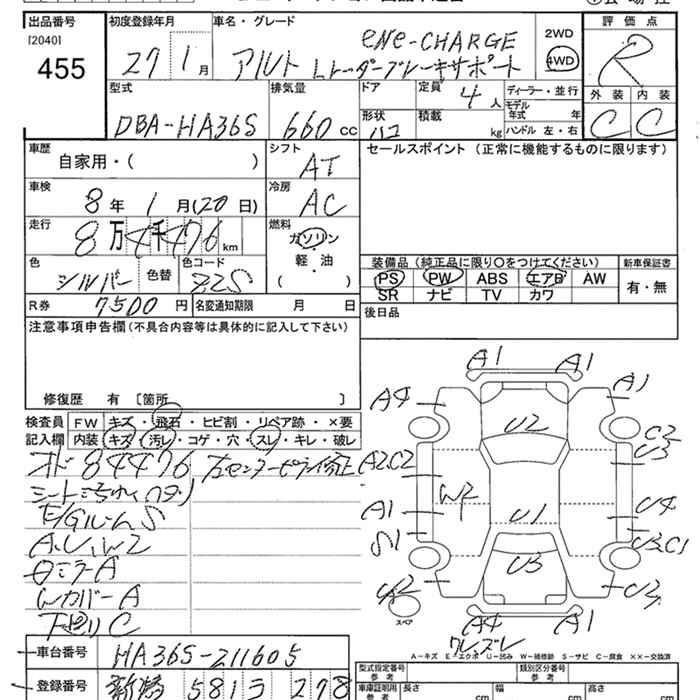 出品番号 初度登録年月 車名・グレード 2WD 評価点
[2040] ene-CHARGE
455 27 1月 アルト Lレーダーブレーキサポート 4WD R
型式 排気量 ドア 定員 4人 ディーラー・並行 外装 内装
モデル年式 年
DBA-HA36S 660cc 形状 積載 kg ハンドル 左・右 C C
車歴 シフト セールスポイント (正常に機能するものに限ります)
自家用・( ) AT
車検 冷房
8年 1月(20日) AC
走行 燃料
8万4千476km ガソリン
軽・油
色 色替 色コード ・ 装備品 (純正品に限り○をつけてください) 新車保証書
シルバー Z2S ( ) PS PW ABS エアB AW 有・無
R券 7500円 名変通知期限 月 日 SR ナビ TV カワ
注意事項申告欄(不具合内容等は具体的に記入して下さい) 後日品
修復歴 有 [箇所 ]
検査員 FW キズ・飛石・ヒビ割・リペア跡・×要
記入欄 内装 キズ・汚レ・コゲ・穴・スレ・キレ・破レ
84476 右センターピラー修正
E/GルームS
A.U.W2
ミラーA
WカバーA
下廻りC
A1 A1
A4 A1
U2
C2
U3
A2.C2
W2 U4
A1 U1
S1 U3.C1
U3
U2 U3
スペア
A4 A1
A-キズ E-エクボ U-凹み W-補修跡 S-サビ C-腐食 ××-交換済
車台番号 HA36S-211605 型式指定番号 参考 類別区分番号 参考
登録番号 新潟 581 278 車庫証明用 参考 長さ cm 幅 cm 高さ cm